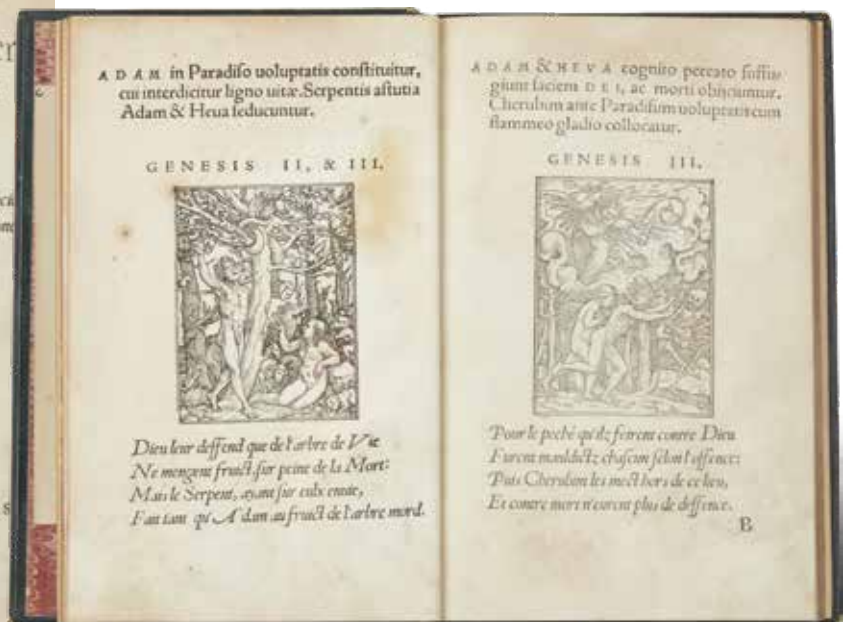 A D A M in Paradiſo uoluptatis conſtituitur,
cui interdicitur ligno uitæ. Serpentis aſtutia
Adam & Heua ſeducuntur.
GENESIS II, & III.
Dieu leur deffend que de l'arbre de Vie
Ne mengent fruict ſur peine de la Mort:
Mais le Serpent, ayant ſur eulx enuie,
Fait tant qu'Adam au fruict de l'arbre mord.
A D A M & H E V A cognito peccato ſuffu-
gium faciem D E I, ac morti obijciuntur.
Cherubim ante Paradiſum uoluptatis cum
flammeo gladio collocatur.
GENESIS III.
Pour le peché qu'ilz feirent contre Dieu
Furent mauldictz chaſcun ſelon l'offence:
Puis Cherubin les mect hors de ce lieu,
Et contre mort n'eurent plus de deffence.
B